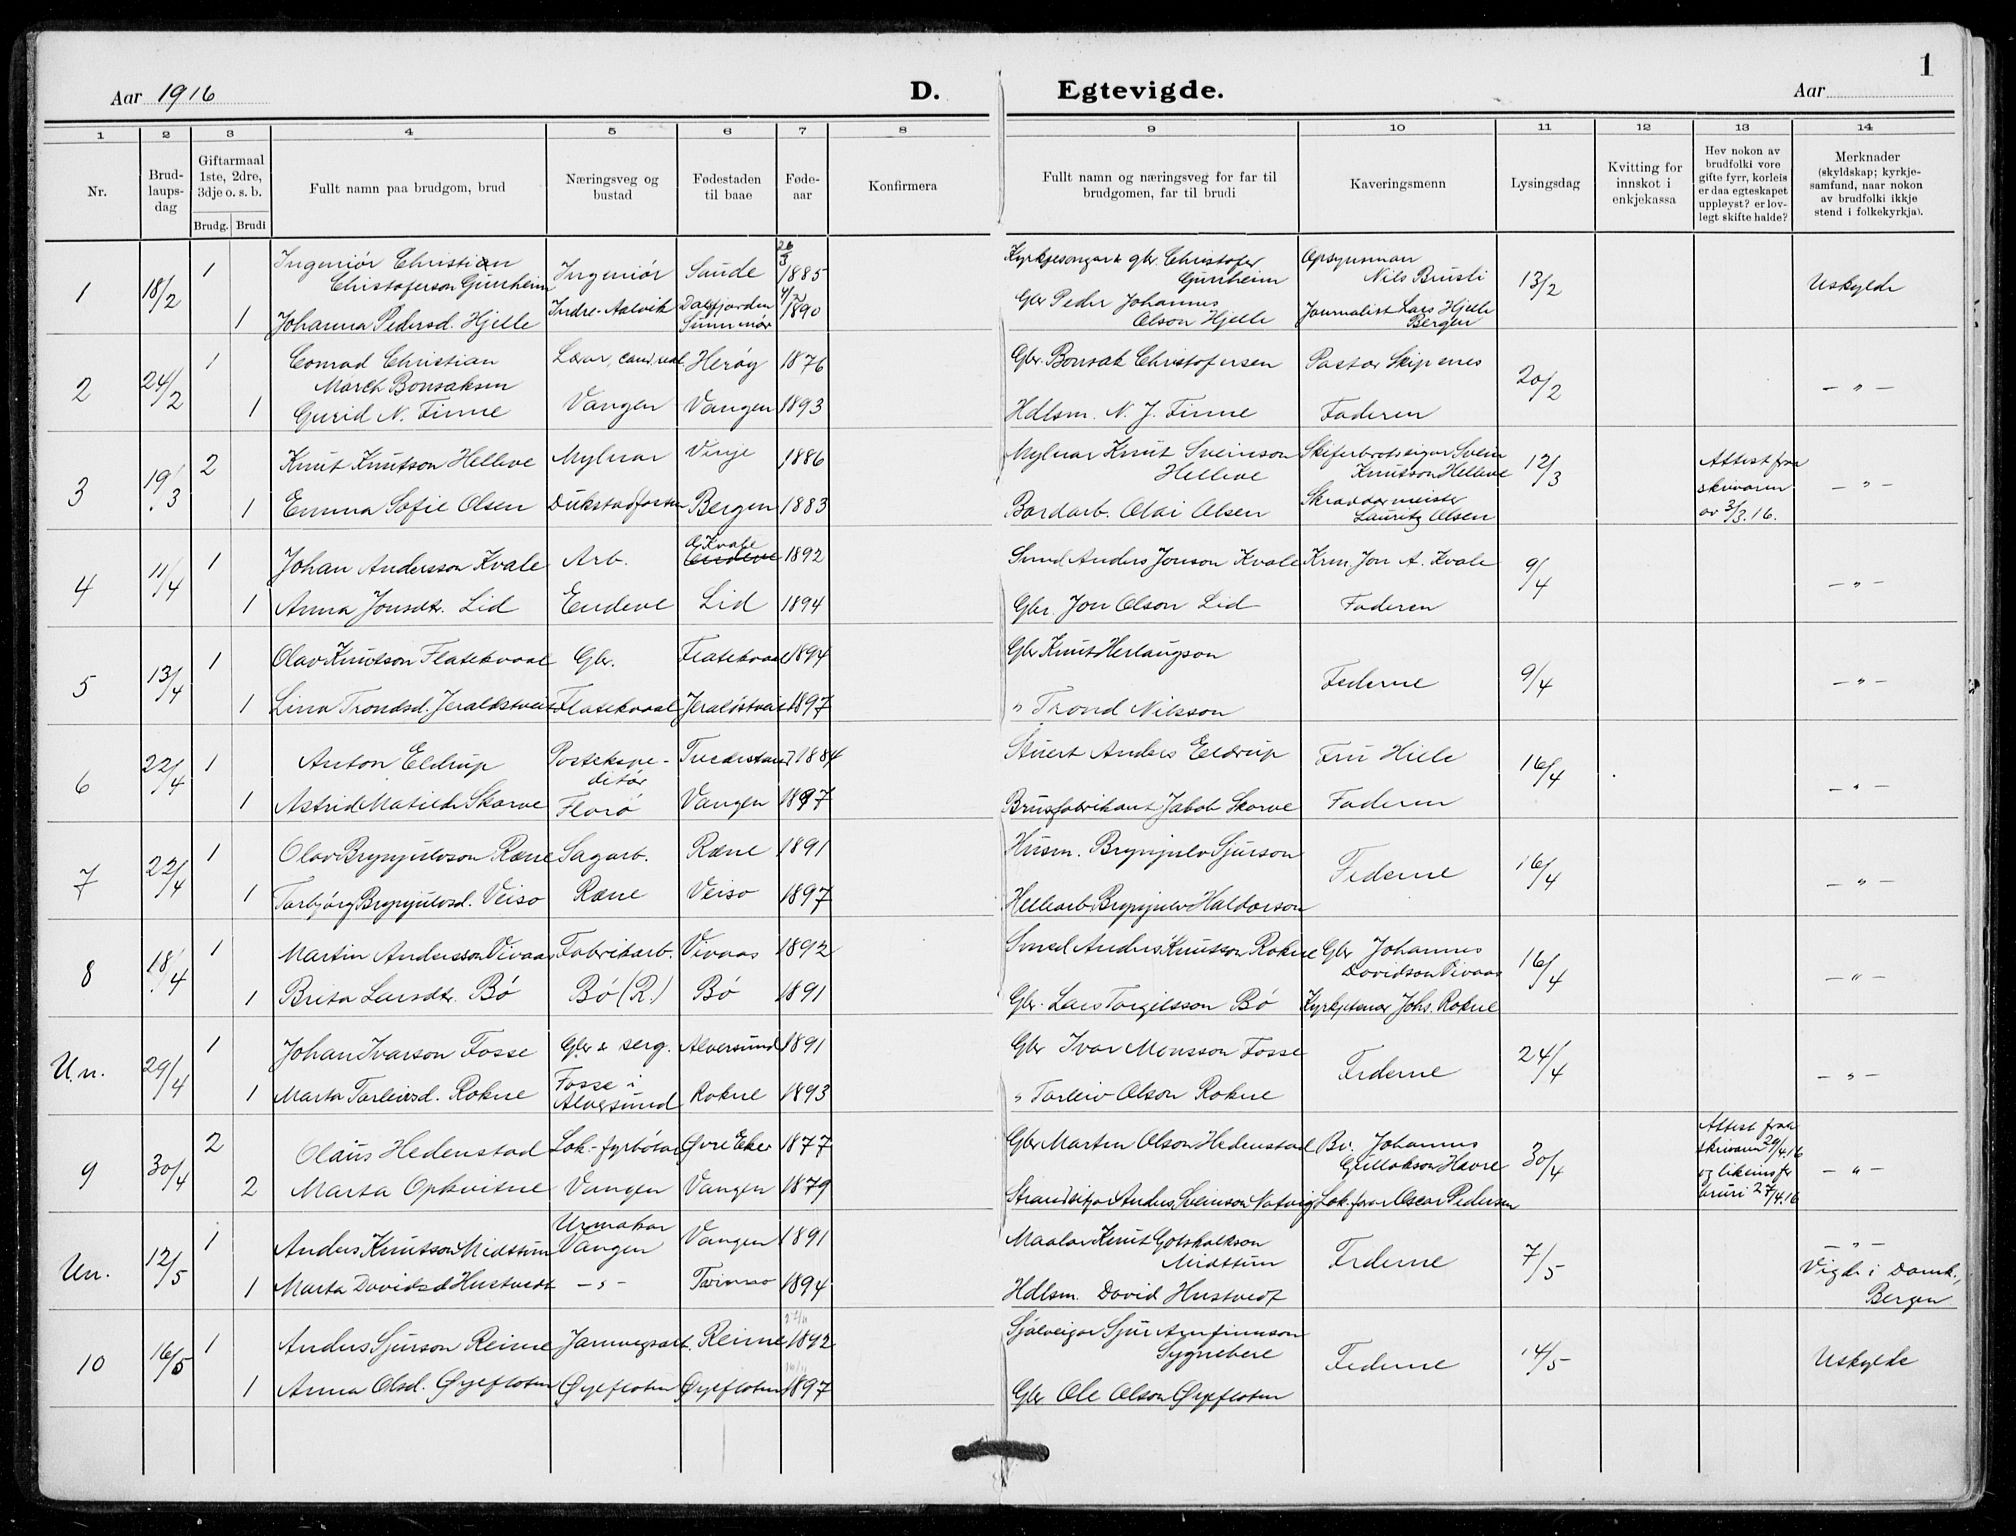 1
Aar 1916 D. Egtevigde. Aar
1 2 3 4 5 6 7 8 9 10 11 12 13 14
Nr.
Brud-
laups-
dag
Giftarmaal
1ste, 2dre,
3dje o. s. b.
Brudg. Brudi
Fullt namn paa brudgom, brud
Næringsveg og
bustad
Fødestaden
til baae
Føde-
aar
Konfirmera
Fullt namn og næringsveg for far til
brudgomen, far til brudi
Kaveringsmenn
Lysingsdag
Kvitting for
innskot i
enkjekassa
Hev nokon av
brudfolki vore
gifte fyrr, korleis
er daa egteskapet
uppløyst? er lov-
legt skifte halde?
Merknader
(skyldskap; kyrkje-
samfund, naar nokon
av brudfolki ikkje
stend i folkekyrkja).
1 18/2 1 Ingeniør Christian Christoferson Gunheim Ingeniør Saude 26/3 1885 Kyrkjesongar & gbr. Christofer Gunheim Opsynsman Nils Brusli 13/2 Uskylde
1 Johanna Pedersd. Hjelle Indre-Aalvik Dalsfjorden Sunnmør 4/7 1890 Gbr Peder Johannes Olson Hjelle Journalist Lars Hjelle Bergen
2 24/2 1 Conrad Christian March Bonsaksen Lærar, cand. real Herøy 1876 Gbr. Bonsak Christofersen Pastor Skipenes 20/2 — " —
1 Gurid N. Finne Vangen Vangen 1893 Hdlsm. N. J. Finne Faderen
3 19/3 2 Knut Knutson Helleve Mylnar Vinje 1886 Mylnar Knut Sveinson Helleve Skiferbrotseigar Svein Knutson Helleve 12/3 Attest fraa skrivaren av 3/3.16. — " —
1 Emma Sofie Olsen Dukstadfossen Bergen 1883 Bordarb. Olai Olsen Skræddarmeister Lauritz Olsen
4 11/4 1 Johan Andersson Kvale Arb. Kvale 1892 Smed Anders Jonson Kvale Krm. Jon A. Kvale 9/4 — " —
1 Anna Jonsdtr. Lid Endeve Lid 1894 Gbr. Jon Olson Lid Faderen
5 13/4 1 Olav Knutson Flatekvaal Gbr. Flatekvaal 1894 Gbr Knut Herlaugson Federne 9/4 — " —
1 Lina Trondsd. Jeraldstveit Flatekvaal Jeraldstveit 1897 " Trond Nilsson
6 22/4 1 Anton Eldrup Postekspe-ditør Tvedestrand 1884 Stuert Anders Eldrup Fru Hille 16/4 — " —
1 Astrid Matilde Skorve Florø Vangen 1897 Brusfabrikant Jakob Skorve Faderen
7 22/4 1 Olav Brynjulvson Ræne Sagarb. Ræne 1891 Husm. Brynjulv Sjurson Federne 16/4 — " —
1 Torbjørg Brynjulvsd. Veiso Ræne Veiso 1897 Hellearb Brynjulv Haldorson
8 18/4 1 Martin Andersson Vivaas Fabrikarb. Vivaas 1892 Smed Anders Knutson Rokne Gbr Johannes Davidson Vivaas 16/4 — " —
1 Brita Larsdtr. Bø Bø (R.) Bø 1891 Gbr. Lars Torgilsson Bø Kyrkjetenar Johs. Rokne
U.n. 29/4 1 Johan Ivarson Fosse Gbr & serg. Alversund 1891 Gbr Ivar Monsson Fosse Federne 24/4 — " —
1 Marta Torleivsd. Rokne Fosse i Alversund Rokne 1893 " Torleiv Olson Rokne
9 30/4 2 Olaus Hedenstad Lok-fyrbøtar Øvre Eker 1877 Gbr Martin Olson Hedenstad Bv. Johannes Havre 30/4 Attest fraa skrivaren 29/4.16 og likeins for bruri 27/4.16 — " —
2 Marta Opkvitne Vangen Vangen 1879 Strandsitjar Anders Sveinson Natvig Lok.førar Oscar Pedersen
Un. 12/5 1 Anders Knutson Midttun Urmakar Vangen Vangen 1891 Maalar Knut Gotskalkson Midttun Federne 7/5 — " — Vigde i Domk., Bergen
1 Marta Davidsd Hustvedt — " — Tvinno 1894 Hdlsm. David Hustvedt
10 16/5 1 Anders Sjurson Reime Jarnvegsarb. Reime 27/11 1892 Sjølveigar Sjur Arnfinnson Sygnebere Federne 14/5 Uskylde
1 Anna Olsd. Øyefloten Øyefloten Øyefloten 1897 Gbr Ole Olson Øyefloten